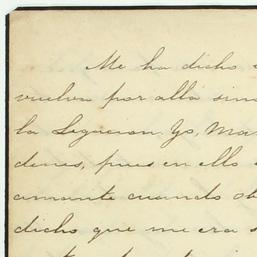 Me ha dicho
vuelva por alla sino
la Legacion. Yo, Ma
denes, pues en ello
amante cuando ob
dicho que me era s